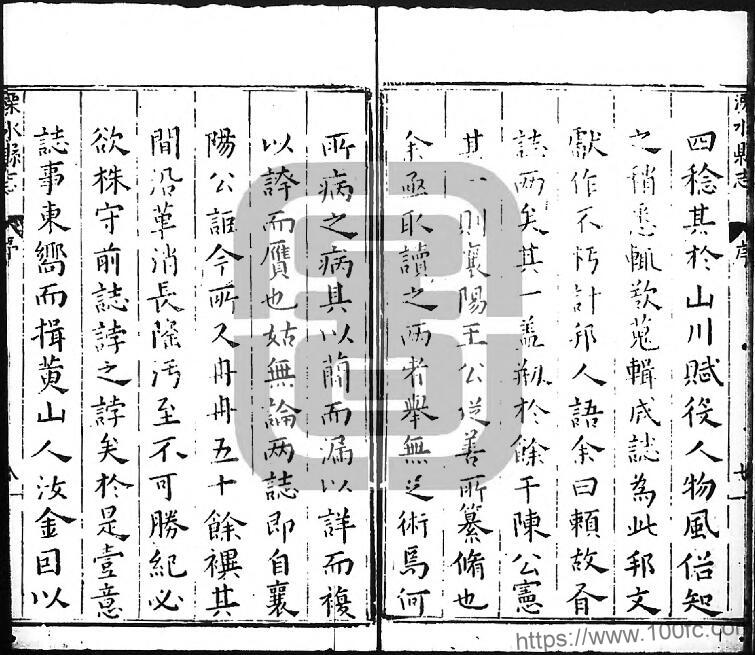 溧水縣志 序
四稔其於山川賦役人物風俗知
之稍悉輒欲蒐輯成誌為此邦文
獻作不朽計邦人語余曰頼故有
誌两矣其一盖剏於餘干陳公憲
其一則襄陽王公從善所纂脩也
余亟取讀之两者舉無足術焉何
所病之病其以簡而漏以詳而複
以誇而贋也姑無論两誌即自襄
陽公詎今所又冉冉五十餘禩其
間沿革消長隆汚至不可勝紀必
欲株守前誌誖之誖矣於是壹意
誌事東嚮而揖黄山人汝金囙以
溧水縣志 序
https://www.100fc.com